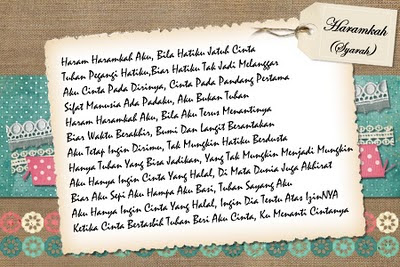 Haramkah
(Syarah)
Haram Haramkah Aku, Bila Hatiku Jatuh Cinta
Tuhan Pegangi Hatiku,Biar Hatiku Tak Jadi Melanggar
Aku Cinta Pada Dirinya, Cinta Pada Pandang Pertama
Sifat Manusia Ada Padaku, Aku Bukan Tuhan
Haram Haramkah Aku, Bila Aku Terus Menantinya
Biar Waktu Berakhir, Bumi Dan Langit Berantakan
Aku Tetap Ingin Dirimu, Tak Mungkin Hatiku Berdusta
Hanya Tuhan Yang Bisa Jadikan, Yang Tak Mungkin Menjadi Mungkin
Aku Hanya Ingin Cinta Yang Halal, Di Mata Dunia Juga Akhirat
Biar Aku Sepi Aku Hampa Aku Basi, Tuhan Sayang Aku
Aku Hanya Ingin Cinta Yang Halal, Ingin Dia Tentu Atas IzinNYA
Ketika Cinta Bertasbih Tuhan Beri Aku Cinta, Ku Menanti Cintanya